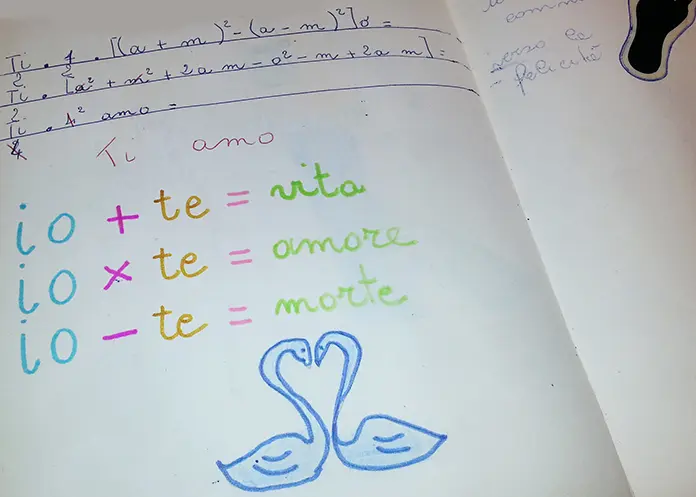 Ti . 1 . [(a + m)² - (a - m)²] o =
2 2
Ti . [a² + m² + 2a m - a² - m + 2a m] =
2
Ti . 4² amo =
4
Ti amo
io + te = vita
io × te = amore
io - te = morte
verso la
- felicità